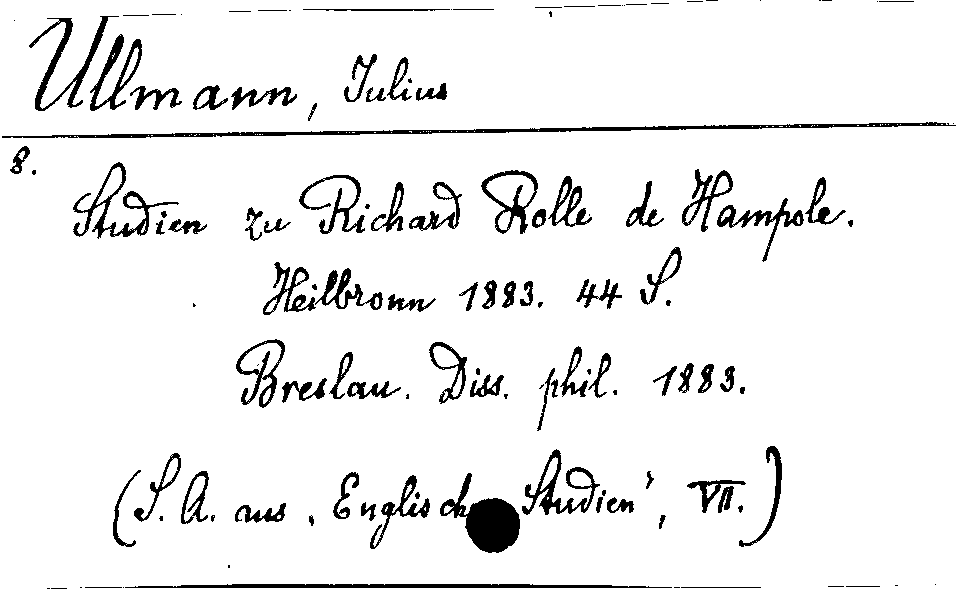 Ullmann, Julius
8.
Studien zu Richard Rolle de Hampole.
Heilbronn 1883. 44 S.
Breslau. Diss. phil. 1883.
(S. A. aus „Englische Studien", VII.)